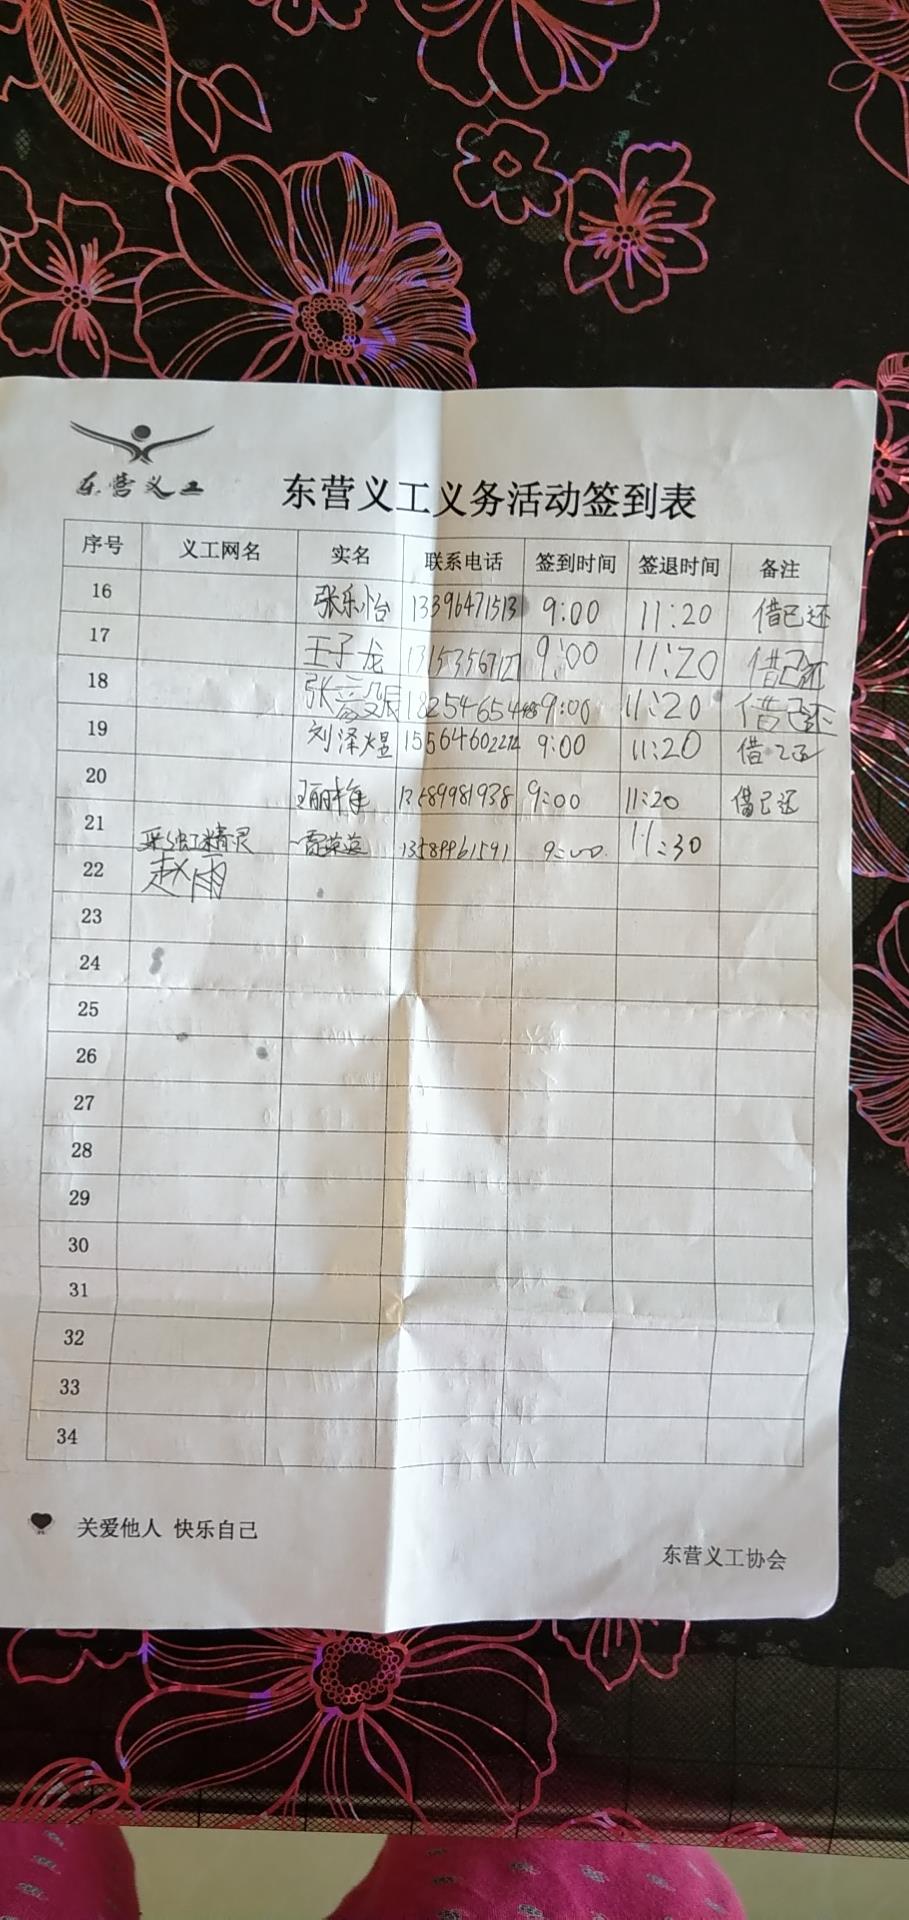 东营义工
东营义工义务活动签到表
序号 义工网名 实名 联系电话 签到时间 签退时间 备注
16 张乐怡 13396471513 9:00 11:20 借已还
17 王子龙 9:00 11:20 借已还
18 张 9:00 11:20 借已还
19 刘泽煜 9:00 11:20 借
20 13589981938 9:00 11:20 借已还
21 精灵 13589961591 9:00 11:30
22 赵雨
23
24
25
26
27
28
29
30
31
32
33
34
关爱他人 快乐自己
东营义工协会